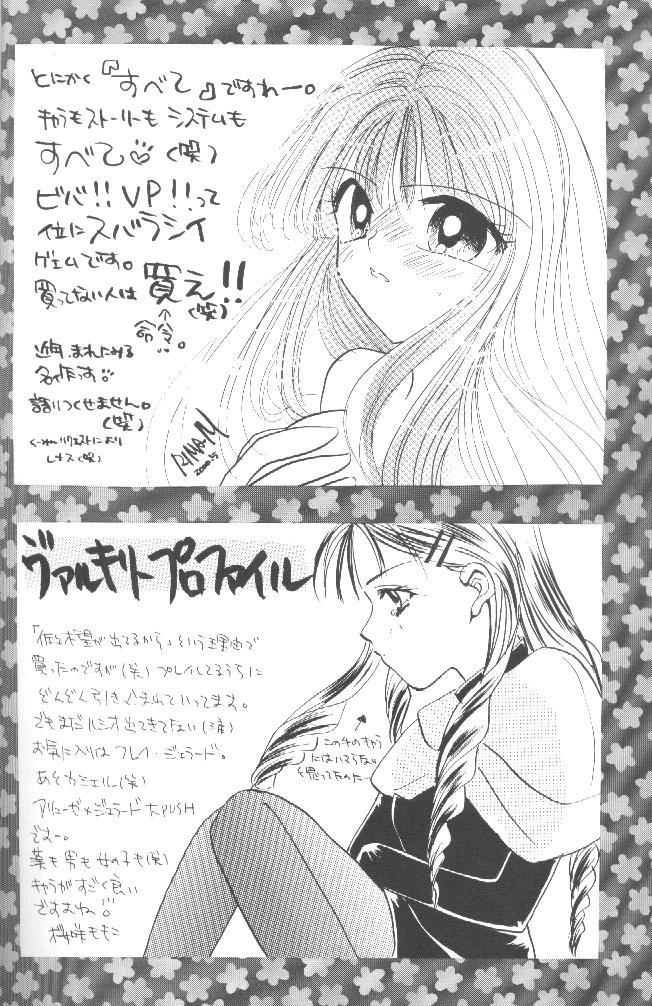 とにかく『すべて』ですわー。
キャラもストーリーもシステムも
すべて♡(笑)
ビバ!!VP!!って
位にスバラシイ
ゲェムです。
買ってない人は買え!!(笑)
↑
命令
近年、まれにみる
名作っす
語りつくせません。
(笑)
レナス(笑)
RINA・M
2000.5
ヴァルキリープロファイル
「佐々木望が出てるから」という理由で
買ったのですが(笑)プレイしてるうちに
ぞんぞん引き込まれていってます。
でもまだルシオ出てきてない(涙)
お気に入りはフレイ・ジェラード。
あとカシェル(笑)
アリューゼ×ジェラード大PUSH
ですー。
男も女の子も(笑)
キャラがすごく良い
ですよね
桜咲ももこ
この手のキャラ
にはいてらない
と思ってたの…